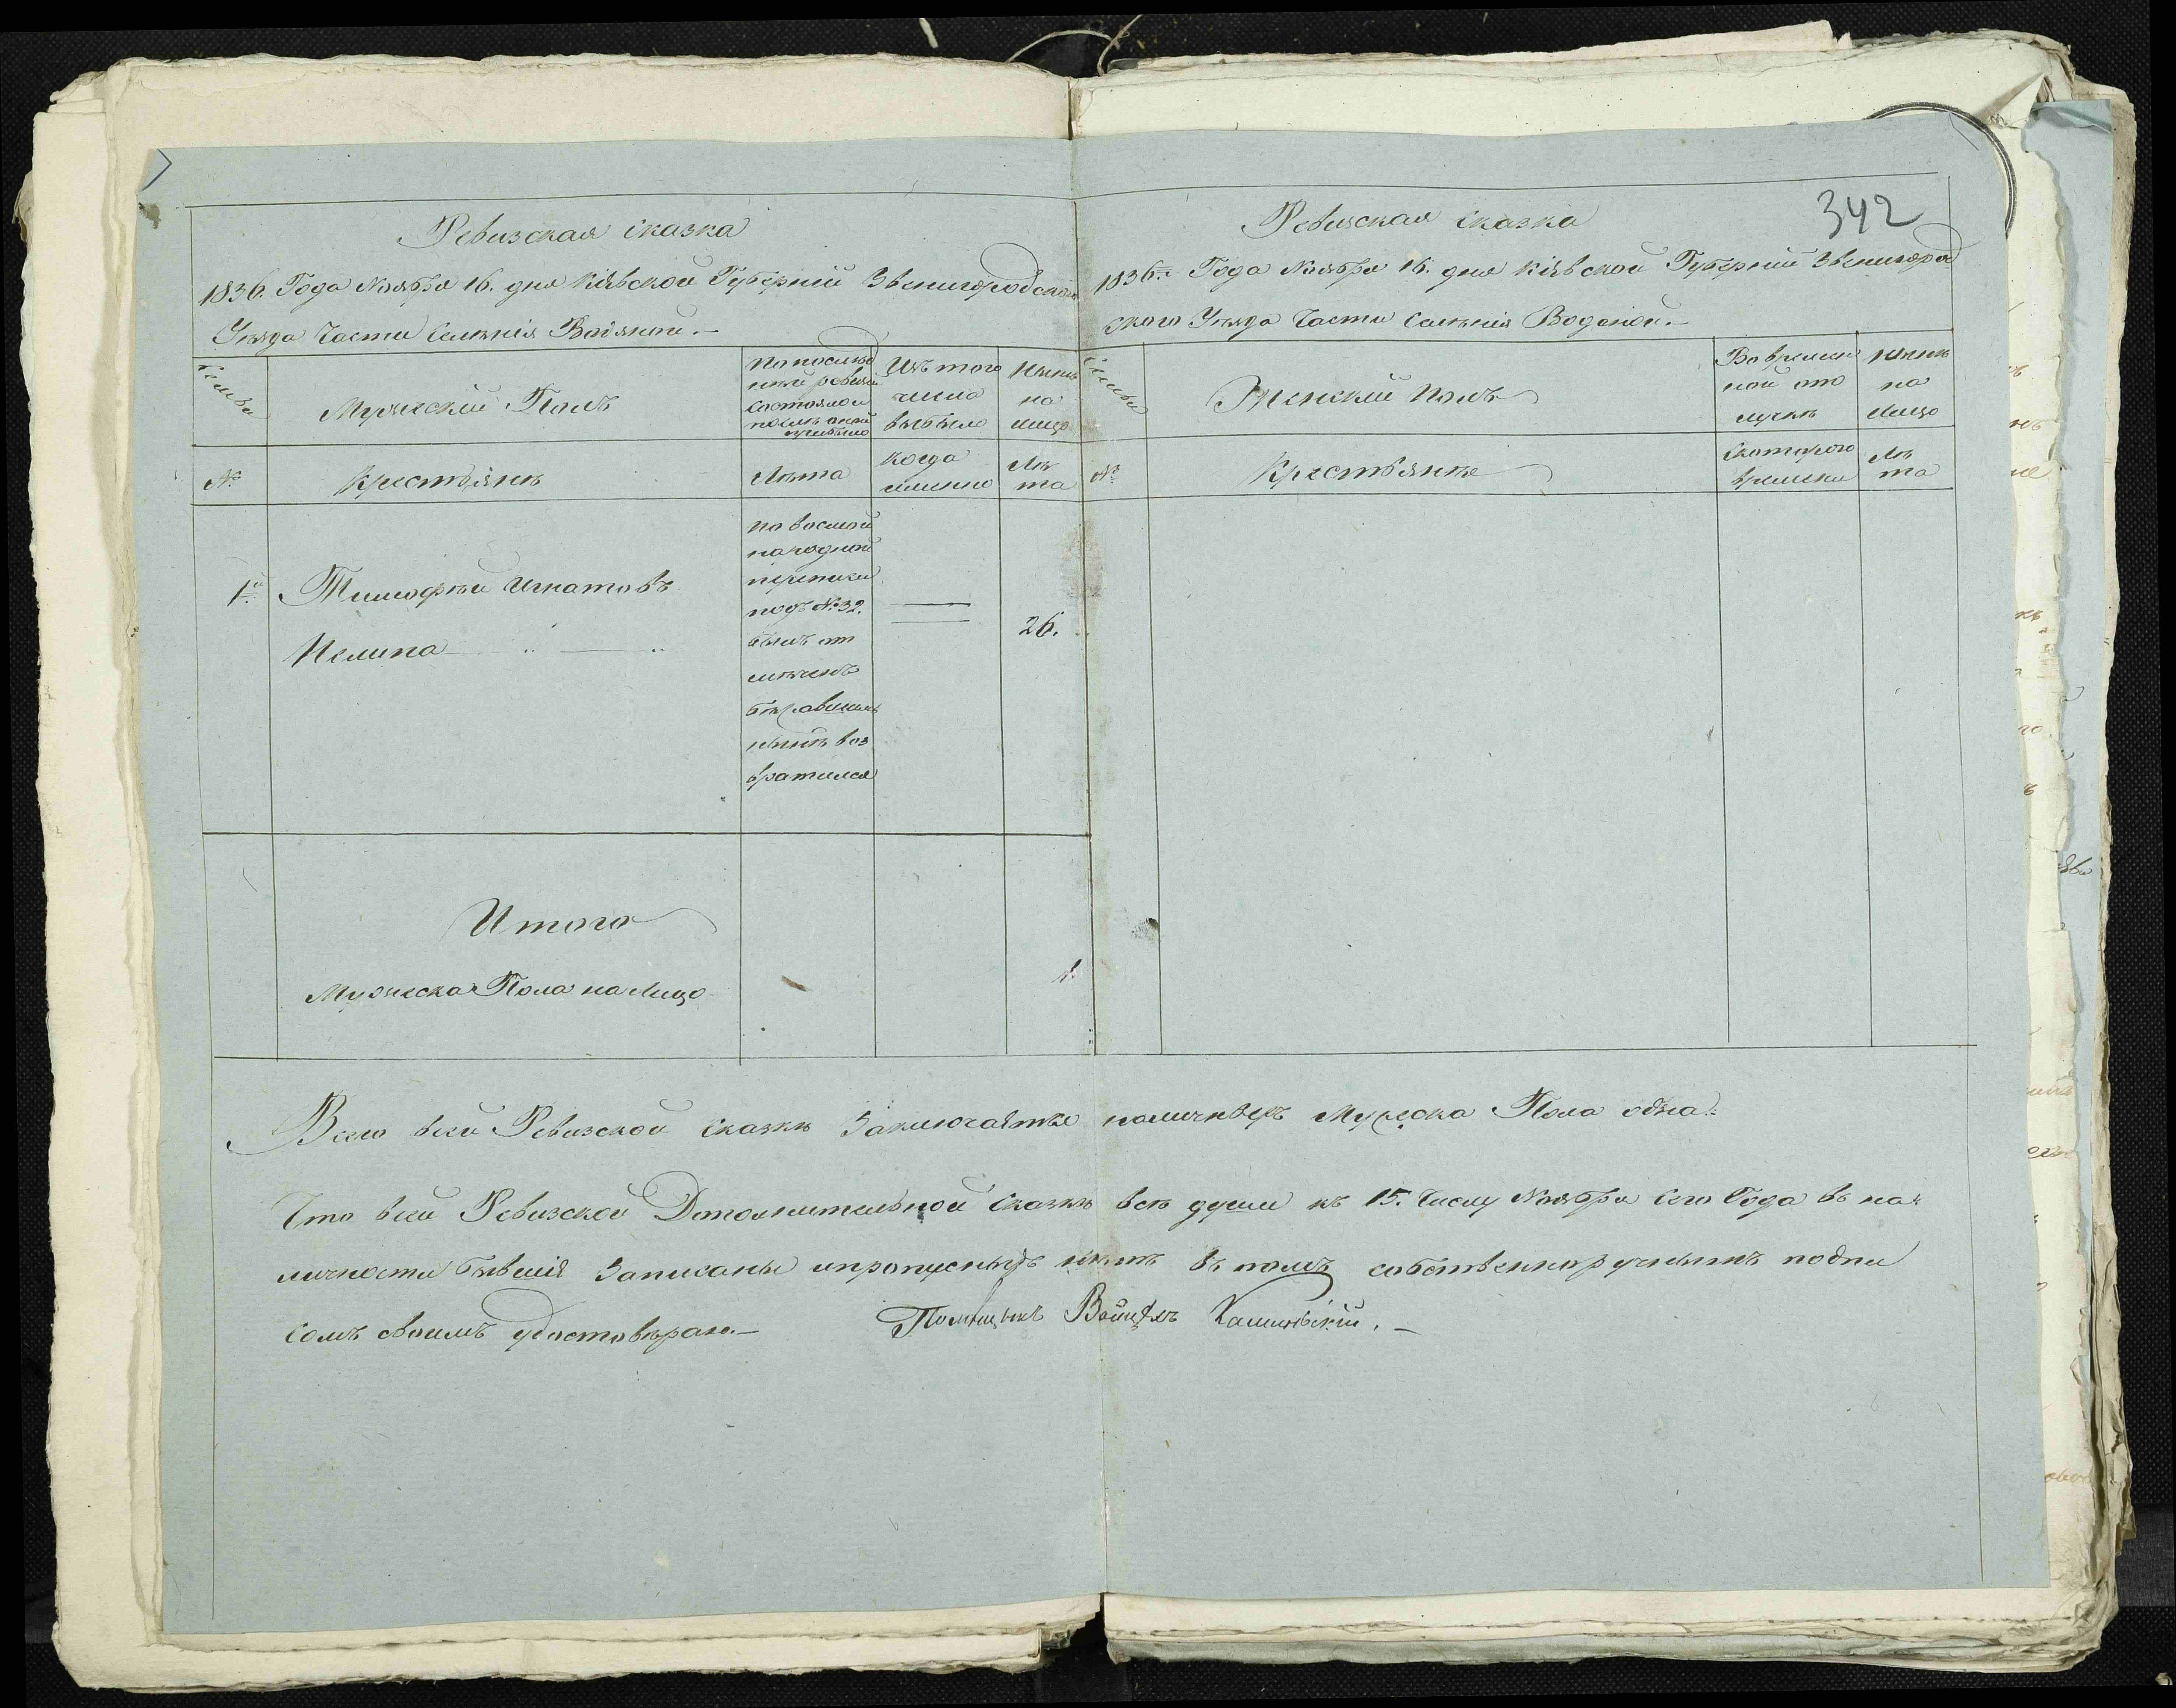 342
Ревизская сказка
1836. Года Ноября 16. дня Кіевской Губерніи Звенигородскаго
Уѣзда Части Селенія Водяной.—
Семьи
Мужескій Полъ
По послѣд
ней ревизіи
состояло и
послѣ оной
прибыло
Изъ того
числа
выбыло
Нынѣ
на
лицо
№
Крестьянѣ
Лѣта
Когда
именно
Лѣ
та
1й
Тимофѣй Игнатовъ
по восмой
народной
переписи
подъ №32.
былъ от
мѣченъ
бежавшимъ
нынѣ воз
вратился
26.
Итого
Мужеска Пола на Лицо
1.
Ревизская сказка
1836го Года Ноября 16. дня Кіевской Губерніи Звенигород
ского Уѣзда Части Селенія Водяной.—
Семьи
Женскій Полъ
Во времен
ной отъ
лучкѣ
Нынѣ
на
Лицо
№
Крестьянѣ
Скоторого
времени
Лѣ
та
Всего всей Ревизской Сказкѣ Заключается Мужеска Пола одна.
Что всей Ревизской Дополнительной Сказкѣ всѣ души къ 15. Числу Ноября Сего Года въ на
личности бывшія Записаны ипропусныхъ нѣтъ въ томъ собственноручнымъ подпи
сомъ своимъ удостовѣраю.— Помѣщикъ